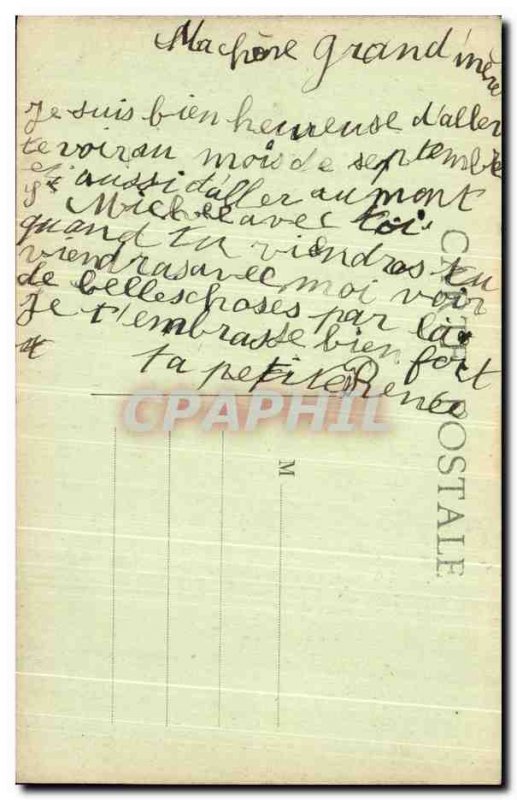 Ma chère grand'mère
Je suis bien heureuse d'aller
te voir au mois de septembre
et aussi d'aller au mont
St Michel avec toi
quand tu viendras tu
viendras avec moi voir
de belles choses par là
Je t'embrasse bien fort
ta petite Renée
CPAPHIL
M
CARTE POSTALE